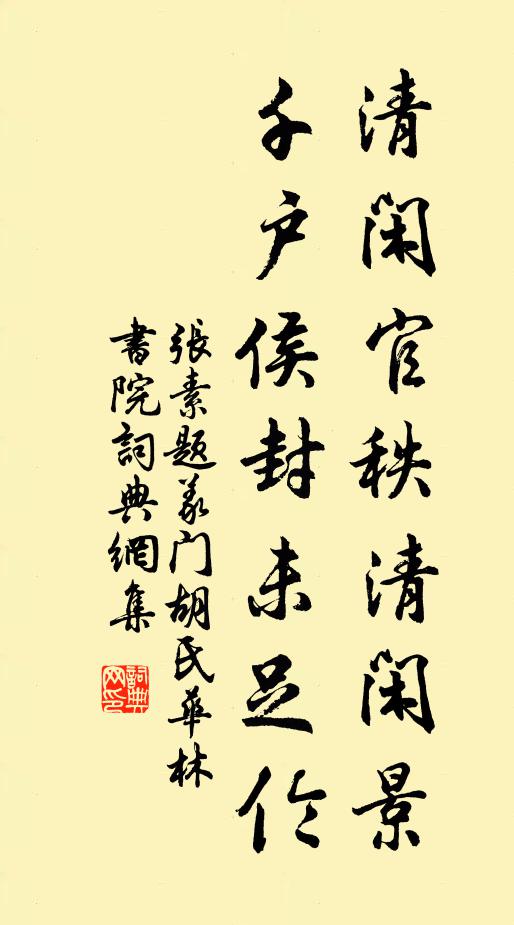 清闲官秩清闲景
千户侯封未足伦
張素題義门胡氏華林
書院詞典網集
詞典
网印